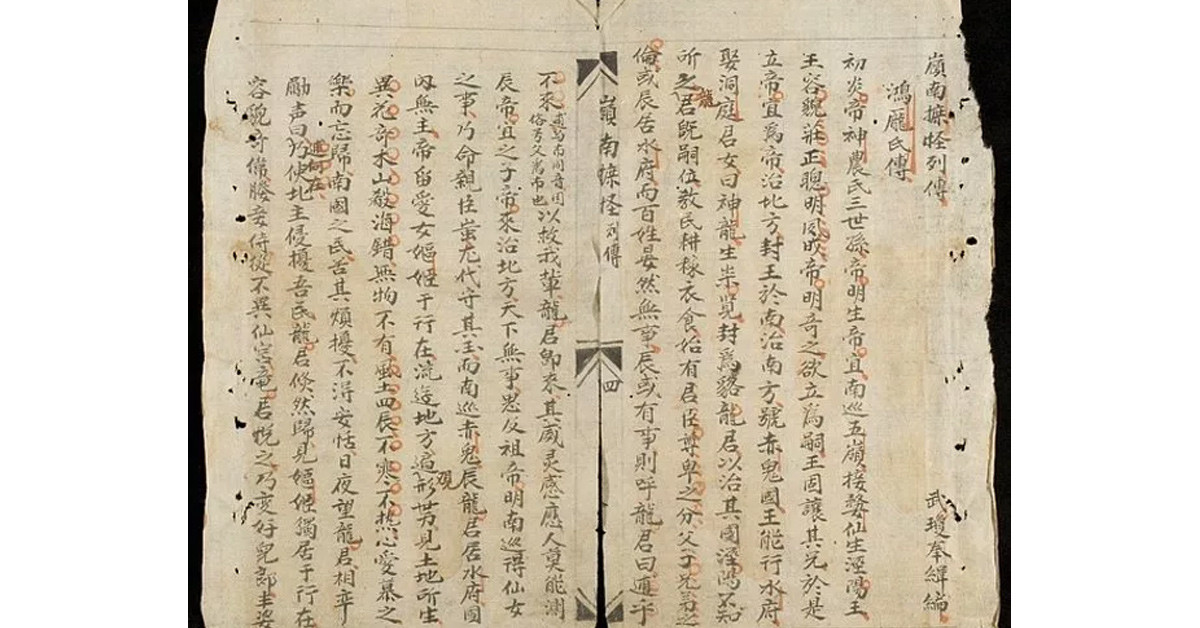 嶺南摭怪列傳 武瓊奉緝編
鴻龐氏傳
初炎帝神農氏三世孫帝明生帝宜南巡五嶺接婺仙生涇陽王
王容貌莊正聰明夙成帝明奇之欲立爲嗣王固讓其兄於是
立帝宜爲帝治北方封王於南治南方號赤鬼國王能行水府
娶洞庭君女曰神龍生崇覽封爲貉龍君以治其國涇陽不知
所之龍君旣嗣位教民耕稼衣食始有君臣尊卑之分父子兄弟之
倫或辰居水府而百姓晏然無事辰或有事則呼龍君曰逋乎
嶺南摭怪列傳 四
不來逋爲布同音因俗号父爲布也以救我輩龍君即來其威灵感應人莫能測
辰帝宜之子帝來治北方天下無事思及祖帝明南巡得仙女
之事乃命親臣蚩尤代守其国而南巡赤鬼辰龍君居水府國
内無主帝留愛女嫗姬于行在流迄地方遍观形势見土地所生
異花奇木山殽海錯無物不有風土四辰不寒不热心愛慕之
樂而忘歸南國之民苦其煩擾不得安恬日夜望龍君相率
勵声曰逋何在乃使北主侵擾吾民龍君倏然歸見嫗姬獨居于行在
容貌奇偹媵妾侍從不異仙宫竜君悦之乃变好皃郎主姿